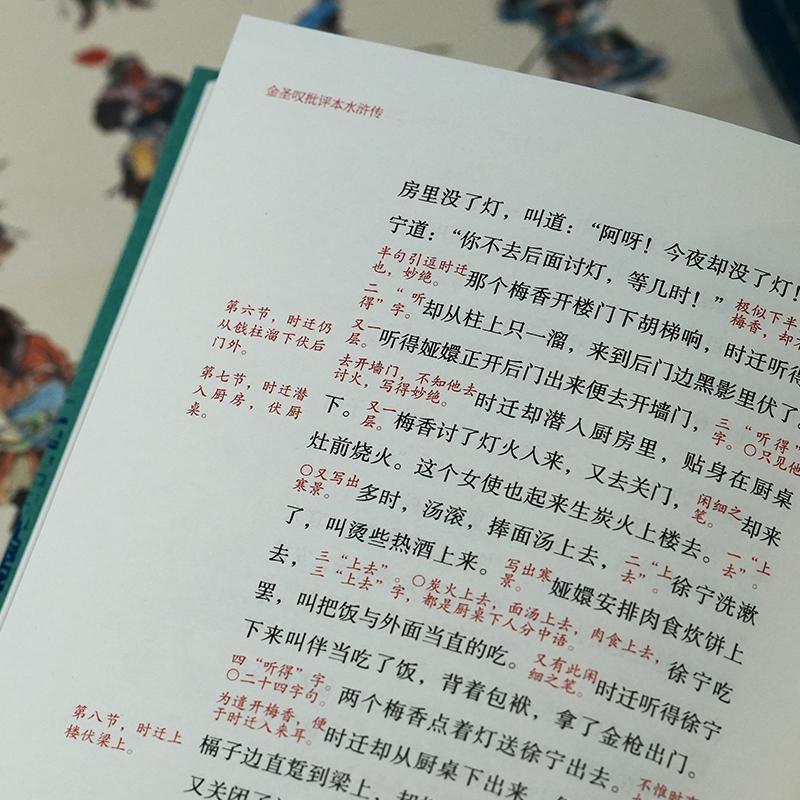 金圣叹批评本水浒传
房里没了灯，叫道：“阿呀！今夜却没了灯！
宁道：“你不去后面讨灯，等几时！”
半句引逗时迁
也，妙绝。
那个梅香开楼门下胡梯响，时迁听得
极似下半
梅香，却
二“听
得”字。
却从柱上只一溜，来到后门边黑影里伏了。
第六节，时迁仍
从戗柱溜下伏后
门外。
又一
层。
听得娅嬛正开后门出来便去开墙门，
三“听得”
字。〇只见他
第七节，时迁潜
入厨房，伏厨
桌。
去开墙门，不知他去
讨火，写得妙绝。
时迁却潜入厨房里，贴身在厨桌
下。
又一
层。
梅香讨了灯火入来，又去关门，
闲细之
笔。
却来
灶前烧火。这个女使也起来生炭火上楼去。
一“上
去”。
〇又写出
寒景。
多时，汤滚，捧面汤上去，
二“上
去”。
徐宁洗漱
了，叫烫些热酒上来。
写出寒
景。
娅嬛安排肉食炊饼上
去，
三“上去”。〇炭火上去，面汤上去，肉食上去，
三“上去”字，都是厨桌下人分中语。
徐宁吃
罢，叫把饭与外面当直的吃。
又有此闲
细之笔。
时迁听得徐宁
下来叫伴当吃了饭，背着包袱，拿了金枪出门。
四“听得”字。
〇二十四字句。
两个梅香点着灯送徐宁出去。
不惟时
为遣开梅香，便
于时迁入来耳。
时迁却从厨桌下出来，
第八节，时迁上
楼伏梁上。
槅子边直踅到梁上，
又关闭了